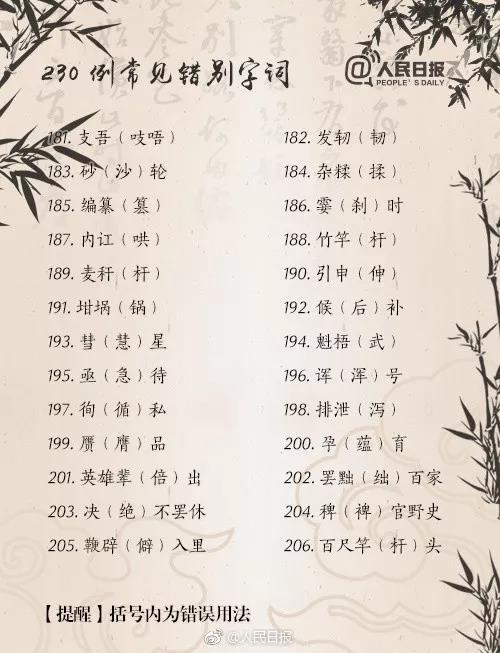 230 例常见错别字词
@人民日报
PEOPLE'S DAILY
181. 支吾（吱唔）
182. 发轫（韧）
183. 砂（沙）轮
184. 杂糅（揉）
185. 编纂（篡）
186. 霎（刹）时
187. 内讧（哄）
188. 竹竿（杆）
189. 麦秆（杆）
190. 引申（伸）
191. 坩埚（锅）
192. 候（后）补
193. 彗（慧）星
194. 魁梧（武）
195. 亟（急）待
196. 诨（浑）号
197. 徇（循）私
198. 排泄（泻）
199. 赝（膺）品
200. 孕（蕴）育
201. 英雄辈（倍）出
202. 罢黜（绌）百家
203. 决（绝）不罢休
204. 稗（裨）官野史
205. 鞭辟（僻）入里
206. 百尺竿（杆）头
【提醒】括号内为错误用法
@人民日报